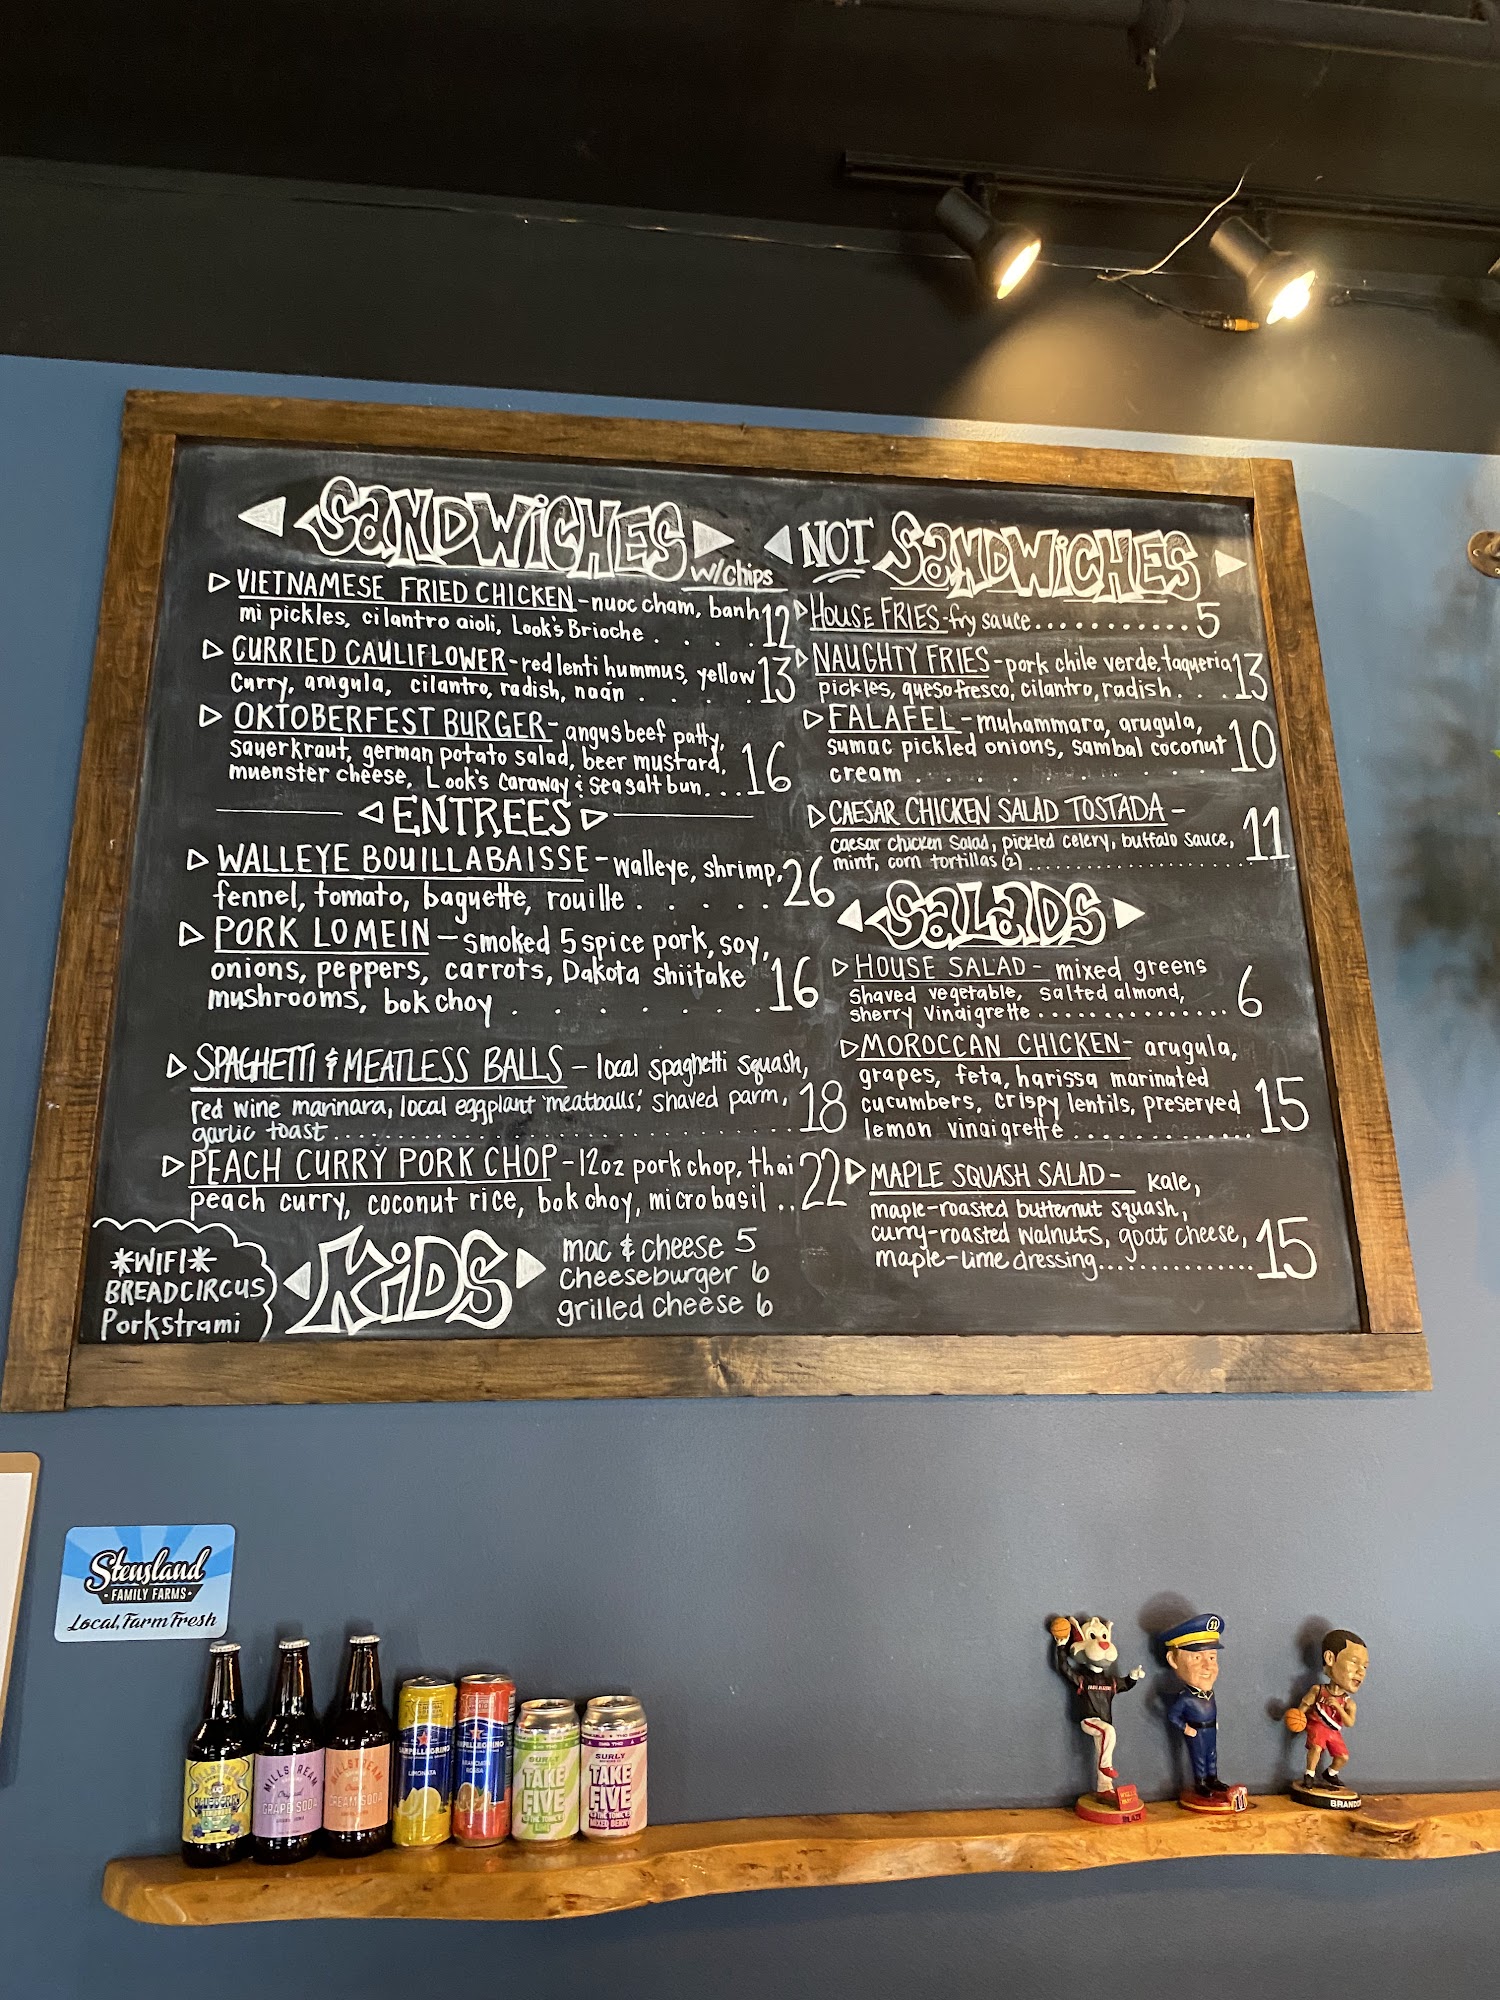 SANDWiCHES
w/chips
VIETNAMESE FRIED CHICKEN-nuoc cham, banh
mi pickles, cilantro aioli, Look's Brioche . . . . 12
CURRIED CAULIFLOWER-red lentil hummus, yellow
curry, arugula, cilantro, radish, naan . . . . . 13
OKTOBERFEST BURGER- angus beef patty,
sauerkraut, german potato salad, beer mustard,
muenster cheese, Look's caraway & sea salt bun... 16
ENTREES
WALLEYE BOUILLABAISSE-walleye, shrimp,
fennel, tomato, baguette, rouille . . . . . 26
PORK LO MEIN -smoked 5 spice pork, soy,
onions, peppers, carrots, Dakota shiitake
mushrooms, bok choy . . . . . . . 16
SPAGHETTI & MEATLESS BALLS - local spaghetti squash,
red wine marinara, local eggplant 'meatballs', shaved parm,
garlic toast ........................ 18
PEACH CURRY PORK CHOP-12oz pork chop, thai
peach curry, coconut rice, bok choy, micro basil .. 22
*WIFI*
BREADCIRCUS
Porkstrami
KiDS
mac & cheese 5
cheeseburger 6
grilled cheese 6
NOT SANDWiCHES
HOUSE FRIES-fry sauce........... 5
NAUGHTY FRIES-pork chile verde, taqueria
pickles, queso fresco, cilantro, radish. . . 13
FALAFEL-muhammara, arugula,
sumac pickled onions, sambal coconut
cream . . . . . . . . . 10
CAESAR CHICKEN SALAD TOSTADA -
caesar chicken salad, pickled celery, buffalo sauce,
mint, corn tortillas (2)...................... 11
SALADS
HOUSE SALAD- mixed greens
shaved vegetable, salted almond,
sherry vinaigrette .............. 6
MOROCCAN CHICKEN- arugula,
grapes, feta, harissa marinated
cucumbers, crispy lentils, preserved
lemon vinaigrette ............. 15
MAPLE SQUASH SALAD- kale,
maple-roasted butternut squash,
curry-roasted walnuts, goat cheese,
maple-lime dressing............... 15
Stensland
FAMILY FARMS
Local, Farm Fresh
MILLSTREAM
GRAPE SODA
MILLSTREAM
CREAM SODA
SANPELLEGRINO
LIMONATA
ROSSA
SURLY
TAKE
FIVE
SURLY
TAKE
FIVE
MIXED BERRY
11